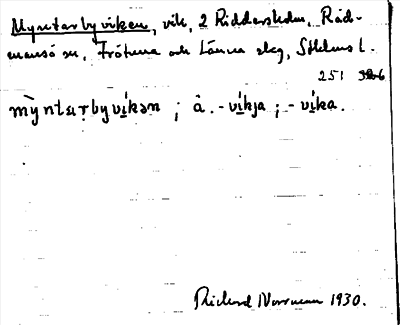 Myntarbyviken, vik, 2 Riddersholm, Råd-
mansö sn, Frötuna och Länna skg, Sthlms l.
251
mỳntaṛbyvíkən ; å. -víkja ; -víka.
Rickard Norrman 1930.